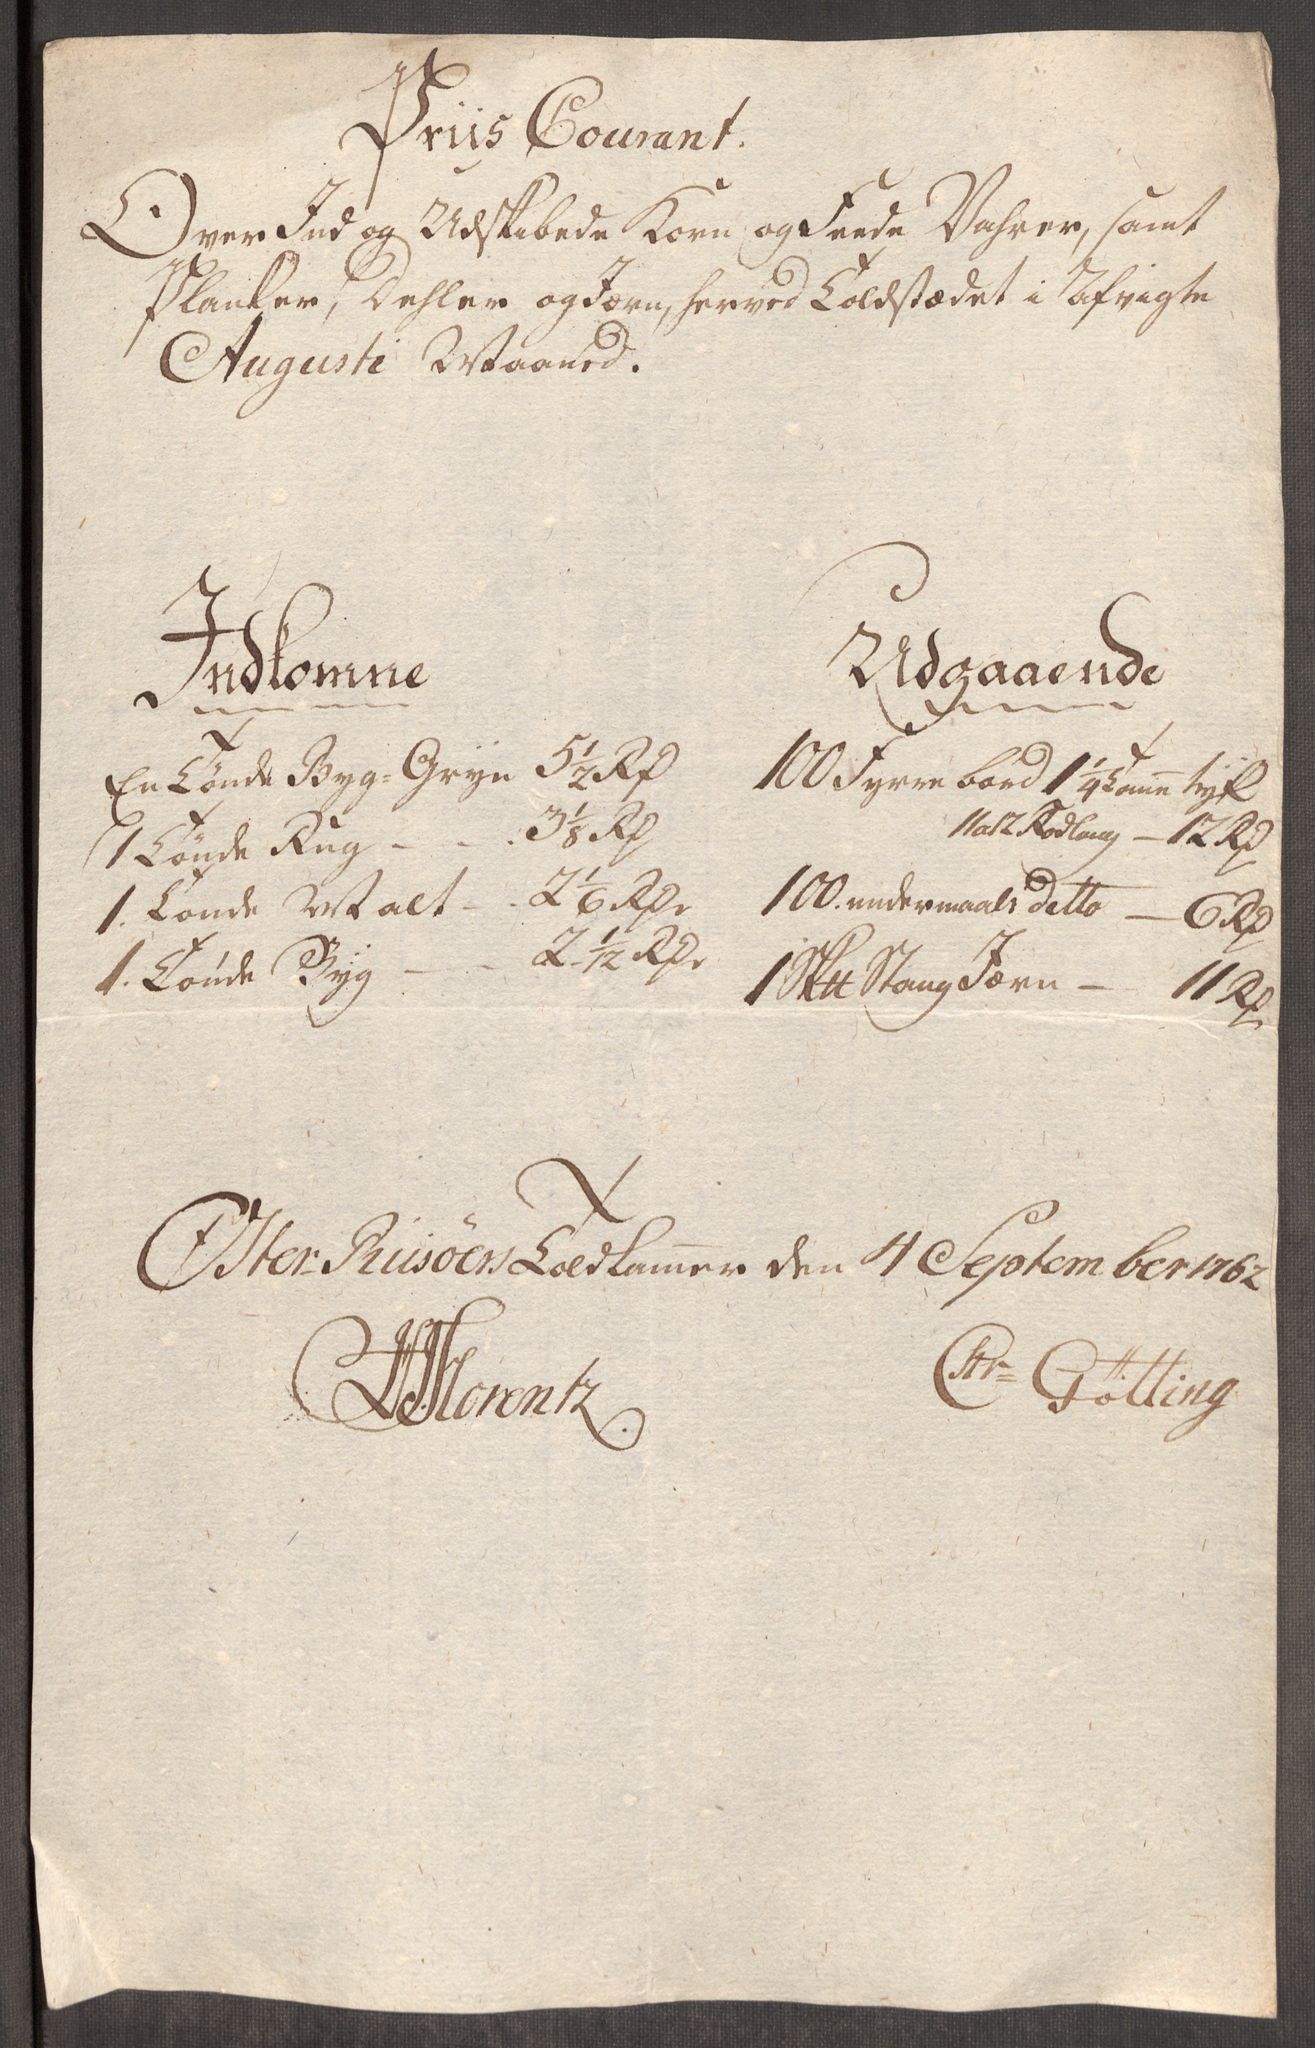 Priis Courant.
Over Ind og Udskibede Korn og Feede Vahrer, samt
Planker, Dehler og Jærn, herved Toldstædet i Afvigte
Augusti Maaned.
Indkomne
En Tønde Byg-Gryn 5 1/2 Rd
1 Tönde Rug - - . 3 1/8 Rd
1. Tønde Malt - . 2 1/6 Rd.
1. Tønde Byg - - 2 1/12 Rd.
Udgaaende
100 Fyrre bord 1 1/4 Tomme tyk
11 a 12 Fod lang - 12 Rd
100. undermaals detto - 6 Rd
1 Sk℔ Stang Jærn - 11 Rd
Øster-Riisöers Toldkammer den 4 September 1762
Lorentz
Chr= Götting